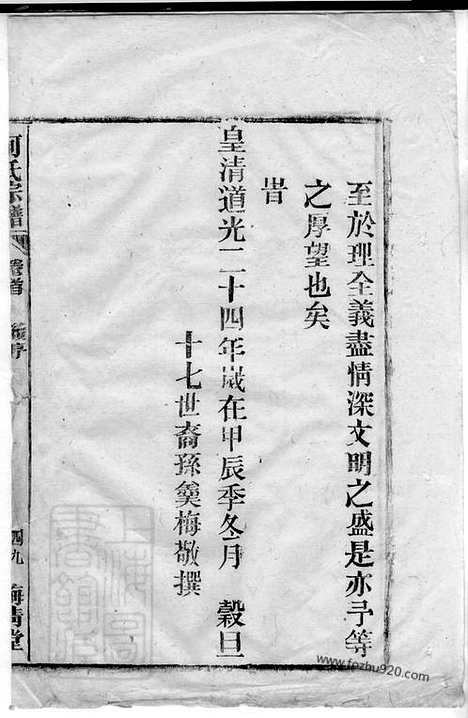 至於理全義盡情深文明之盛是亦予等
之厚望也矣
旹
皇清道光二十四年歲在甲辰季冬月 穀旦
十七世裔孫奠梅敬撰
何氏宗譜 卷首 序 四九 梅清堂
www.fozhu920.com